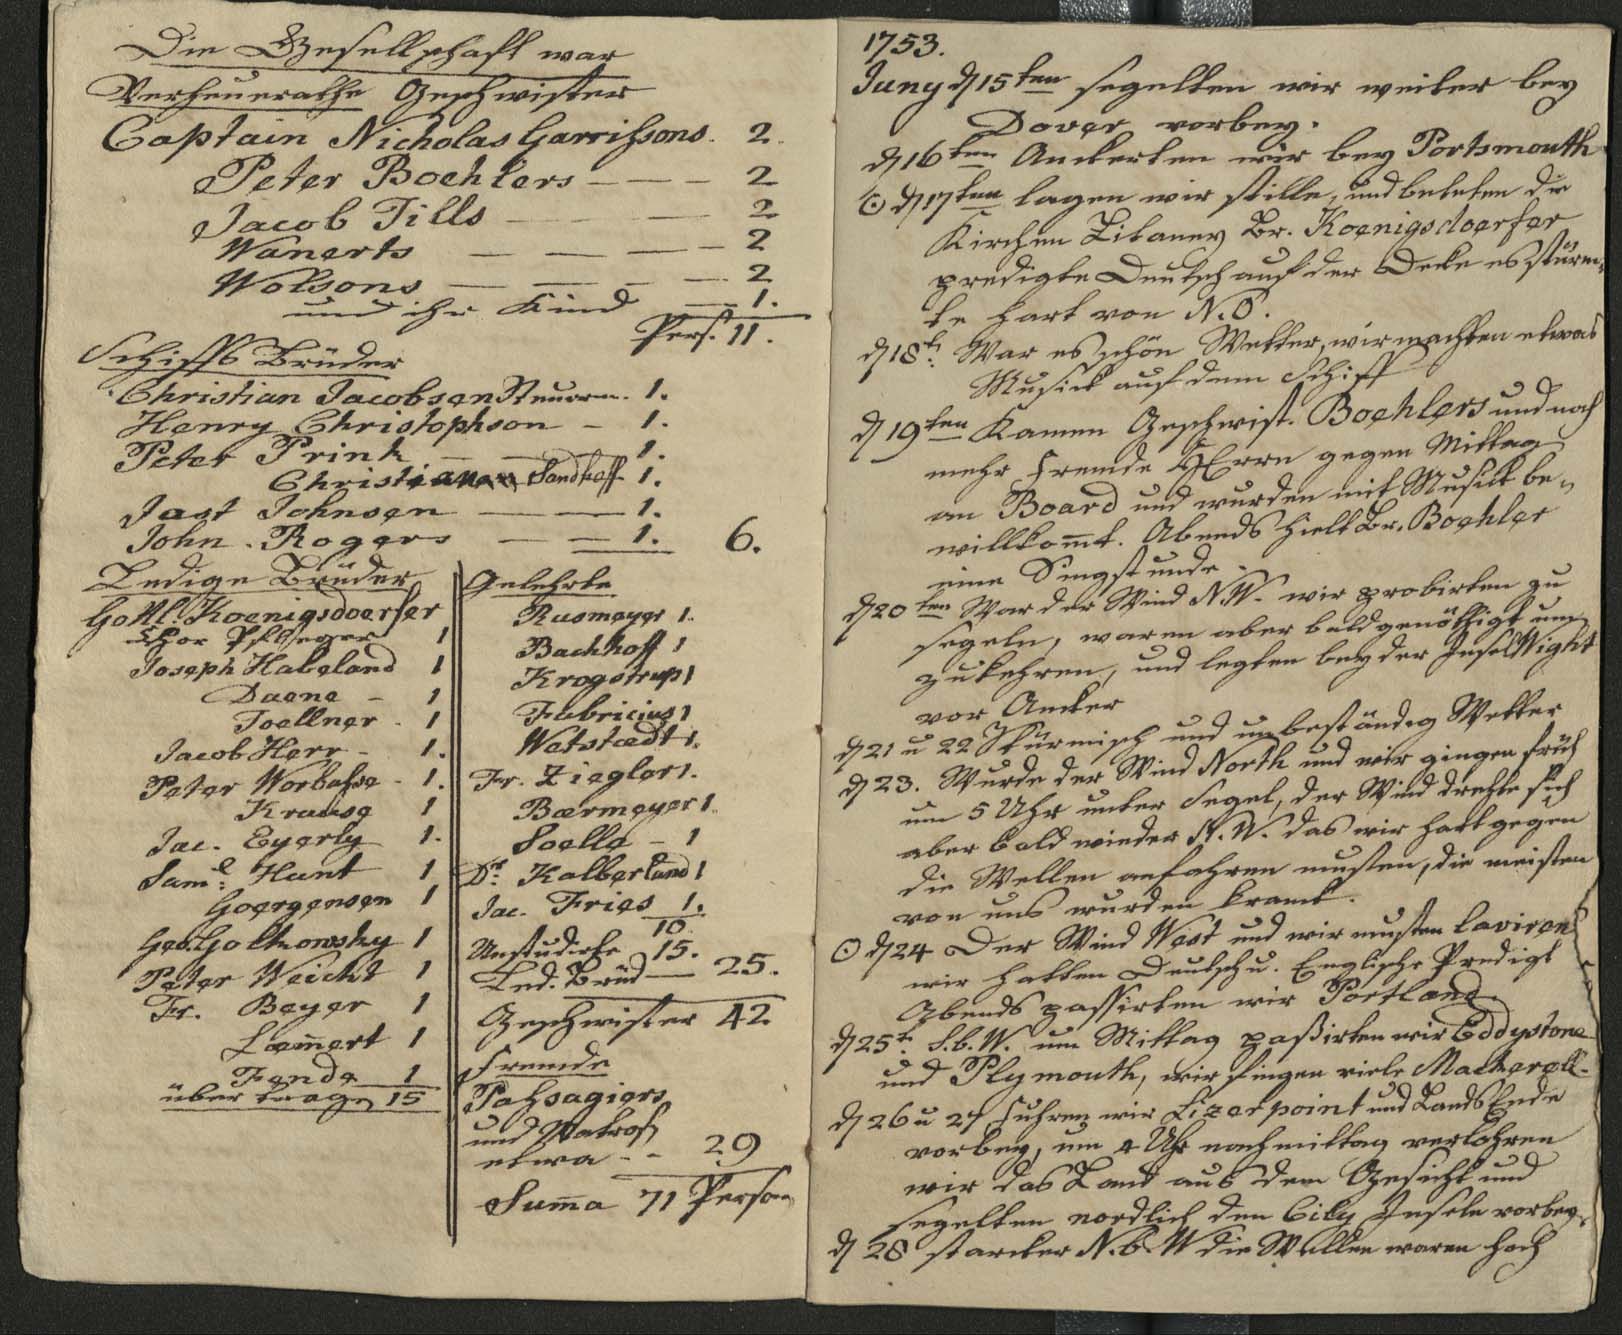 Die Gesellschaft war
Verheuerathe Geschwister
Captain Nicholas Garrisons. 2.
Peter Boehlers — — — 2
Jacob Tills — — — 2.
Wanerts — — — — 2
Wolsons — — — — 2
und ihr Kind — 1.
Pers. 11.
Schiffs Brüder
Christian Jacobsen Steuerm. 1.
Henry Christophson – 1.
Peter Prink — — 1.
Christian Sandhoff 1.
Jast Johnsen — — 1.
John. Rogers — — 1. 6.
Ledige Brüder
Gottl. Koenigsdoerfer
Chor Pfleger 1
Joseph Habeland 1
Daene – 1
Toellner - 1
Jacob Herr - 1.
Peter Worbasse - 1.
Krause 1
Jac. Eyerly 1.
Saml. Hunt 1
Goergensen 1
Geo. Golkowsky 1
Peter Weicht 1
Fr. Beyer 1
Lam̄ert 1
Fende 1
über trage 15
Gelehrte
Rusmeyer 1.
Bachhoff 1
Krogstrup 1
Fabricius 1
Watstædt 1.
Fr. Ziegler 1.
Bærmeyer 1.
Soelle – 1
Dr. Kalberland 1
Jac. Fries 1.
10
Unstudirte 15.
Led. Brüd — 25.
Geschwister 42
Fremde
Pahsagiers
und Matros
etwa - - 29
Sum̄a 71 Person
1753.
Juny d 15ten segelten wir weiter bey
Dover vorbey.
d 16ten Anckerten wir bey Portsmouth
☉ d 17ten lagen wir stille, und beteten die
Kirchen Litaney Br. Koenigsdoerfer
predigte Deutsch auf der Decke es stürm=
te hart von N.O.
d 18t. War es schön Wetter, wir machten etwas
Musick auf dem Schiff
d 19ten Kamen Geschwist. Boehlers und noch
mehr fremde HErrn gegen Mittag
an Board und wurden mit Musick be=
willkom̄t. Abends hielt Br. Boehler
eine Singstunde.
d 20ten War der Wind N.W. wir probirten zu
segeln, waren aber bald genöthigt um
zukehren, und legten bey der Insel Wight
vor Ancker
d 21 u 22 Stürmisch und unbeständig Wetter
d 23. Wurde der Wind North und wir gingen früh
um 5 Uhr unter Segel, der Wind drehte sich
aber bald wieder N.W. das wir hart gegen
die Wellen anfahren musten, die meisten
von uns wurden kranck.
☉ d 24 Der Wind West und wir musten laviren
wir hatten Deutsch u. Englische Predigt
Abends passirten wir Portland.
d 25t. S.b.W. um Mittag paßirten wir Eddystone
und Plymouth, wir fingen viele Mackerell-
d 26 u 27 fuhren wir Lizerpoint und Lands Ende
vorbey, um 4 Uhr nachmittag verlohren
wir das Land aus dem Gesicht und
segelten nordlich den Cily Inseln vorbey.
d 28 starcker N.b.W die Wellen waren hoch